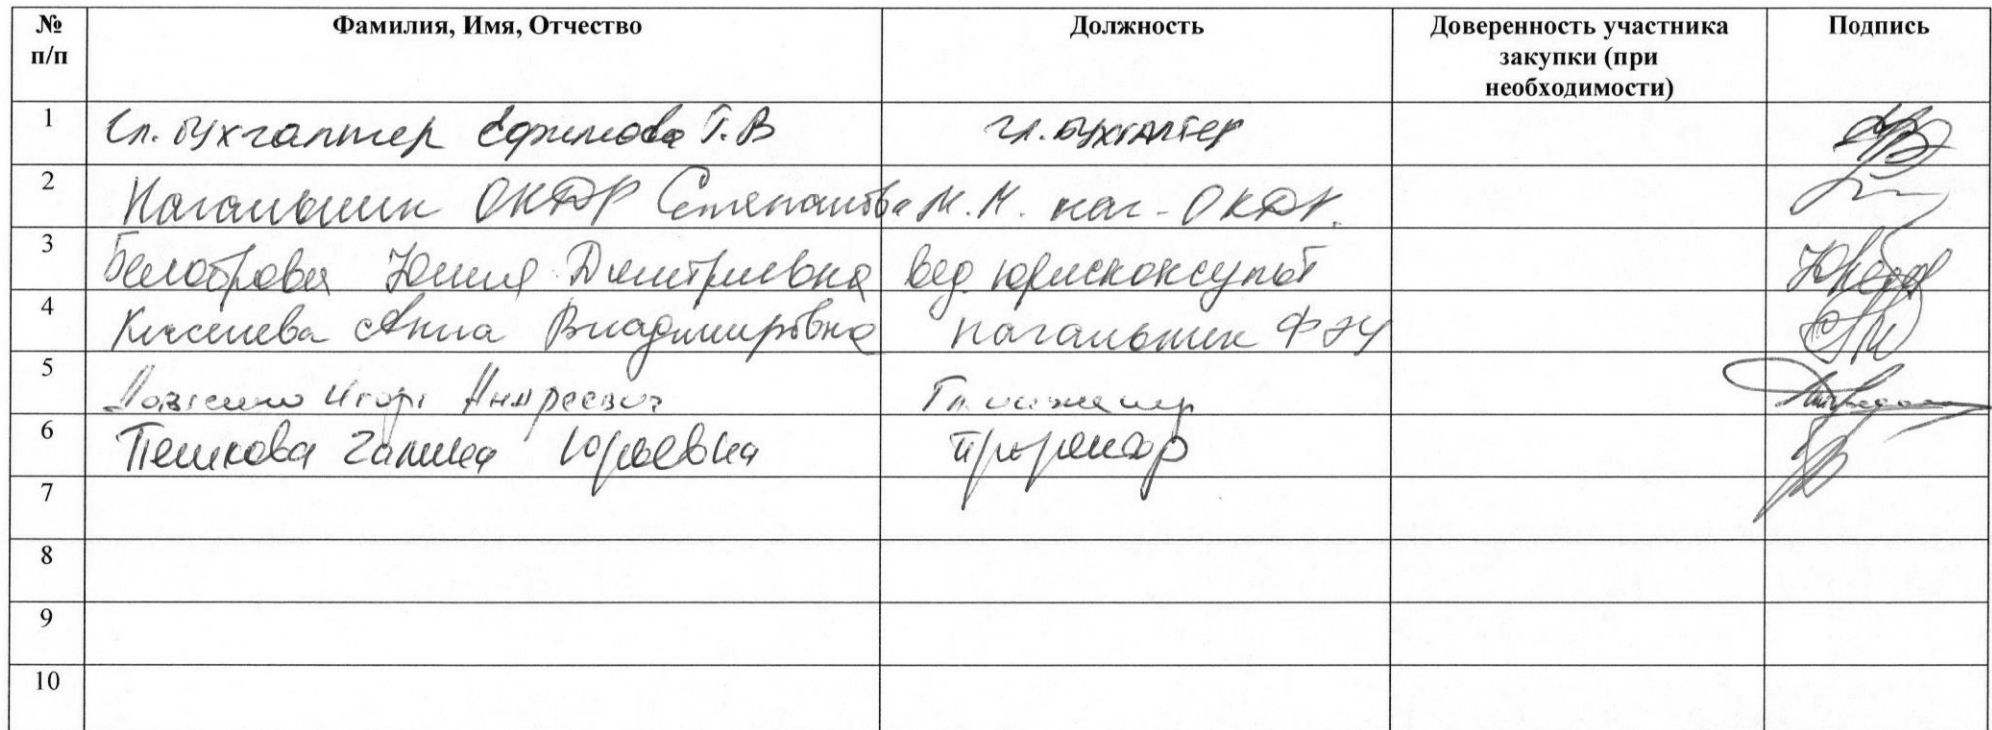 № п/п Фамилия, Имя, Отчество Должность Доверенность участника закупки (при необходимости) Подпись
1 Гл. бухгалтер Ефимова Т. В гл. бухгалтер
2 Начальник ОКДР Степанова М. М. нач. ОКДР.
3 Белоброва Юлия Дмитриевна вед. юрисконсульт
4 Киселева Анна Владимировна начальник ФЭУ
5 Игорь Андреевич Гл. инженер
6 Пешкова Галина Юрьевна проректор
7
8
9
10